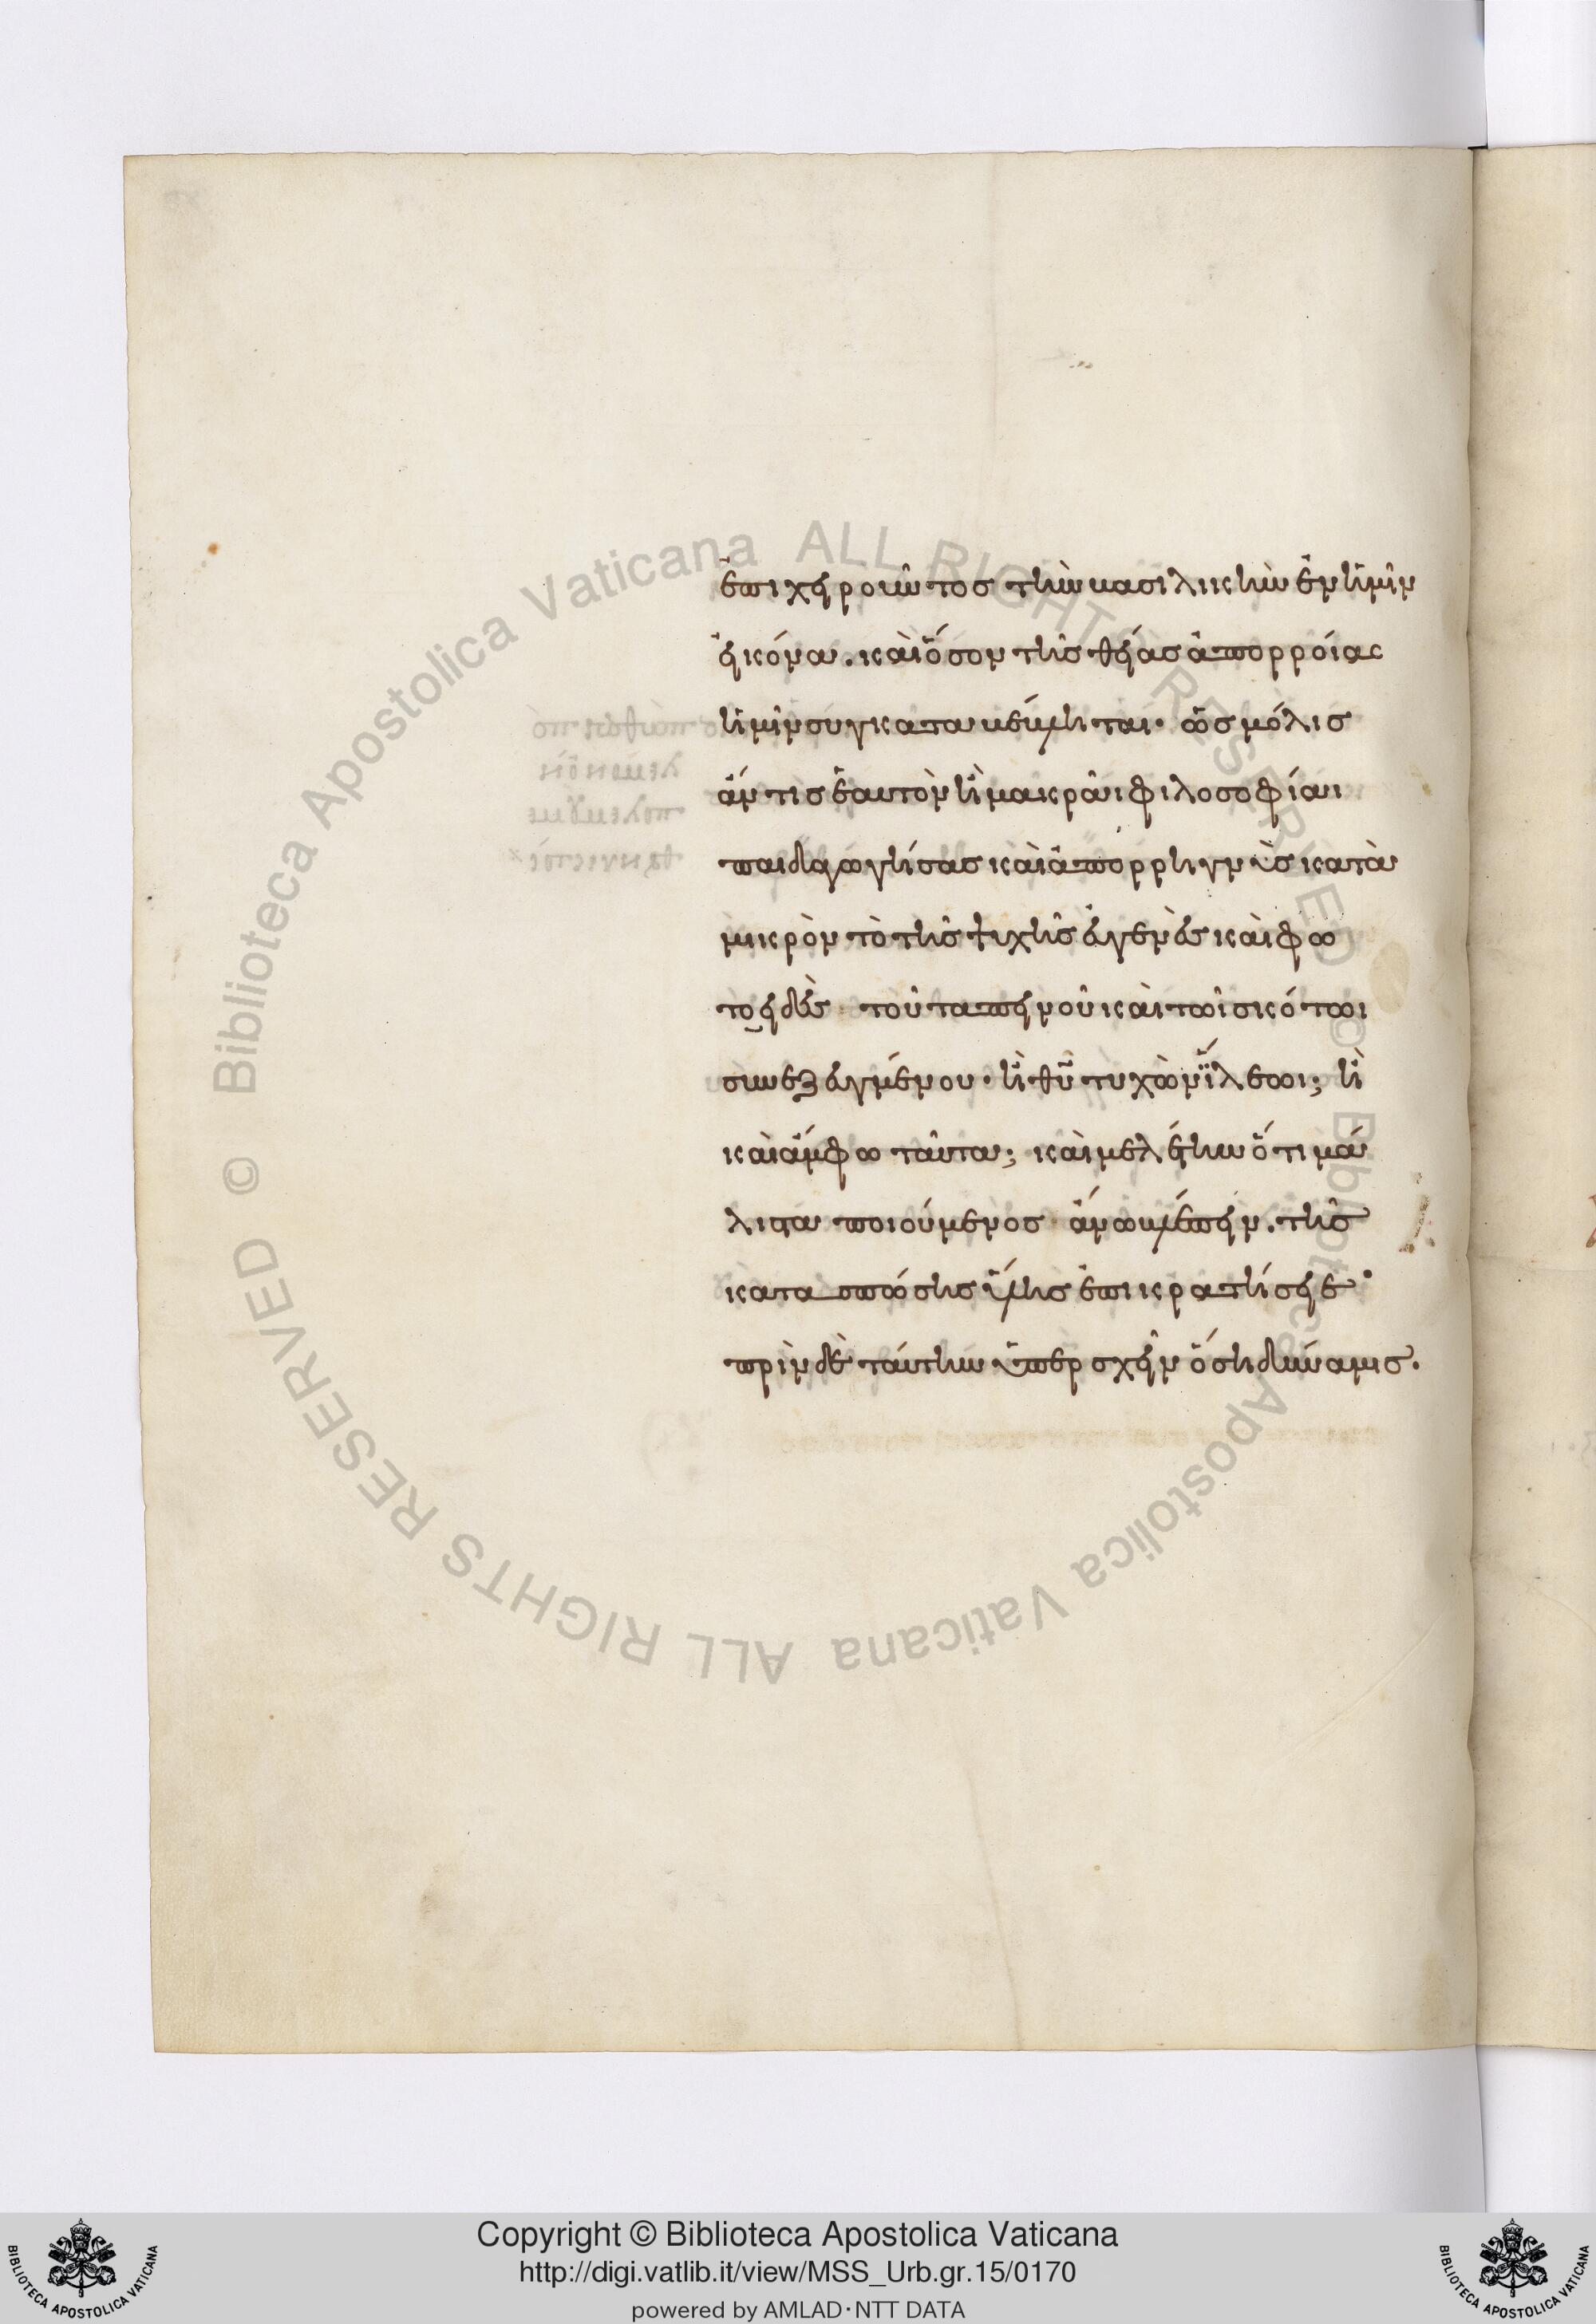 ἐπιχειροῦντος τὴν βασιλικὴν ἐν ἡμῖν
εἰκόνα. καὶ ὅσον τῆς θείας ἀπορροίας
ἡμῖν συγκαταβέβληται. ὡς μόλις
ἄν τις ἑαυτὸν ἢ μακρᾶι φιλοσοφίαι
παιδαγωγήσας καὶ ἀπορρηγνὺς κατὰ
μικρὸν τὸ τῆς ψυχῆς εὐγενὲς καὶ φω
τοειδὲς τοῦ ταπεινοῦ καὶ τῶι σκότωι
συνεζευγμένου. ἢ θῦ τυχὼν ἵλεωι; ἢ
καὶ ἄμφω ταῦτα; καὶ μελέτην ὅτι μά
λιστα ποιούμενος ἄνω βλέπειν. τῆς
κατασπώσης ὕλης ἐπικρατήσειε.
πρὶν δὲ ταύτην ὑπερσχεῖν ὅση δύναμις.
Copyright © Biblioteca Apostolica Vaticana
http://digi.vatlib.it/view/MSS_Urb.gr.15/0170
powered by AMLAD·NTT DATA
BIBLIOTECA APOSTOLICA VATICANA
BIBLIOTECA APOSTOLICA VATICANA
© Biblioteca Apostolica Vaticana ALL RIGHTS RESERVED
© Biblioteca Apostolica Vaticana ALL RIGHTS RESERVED